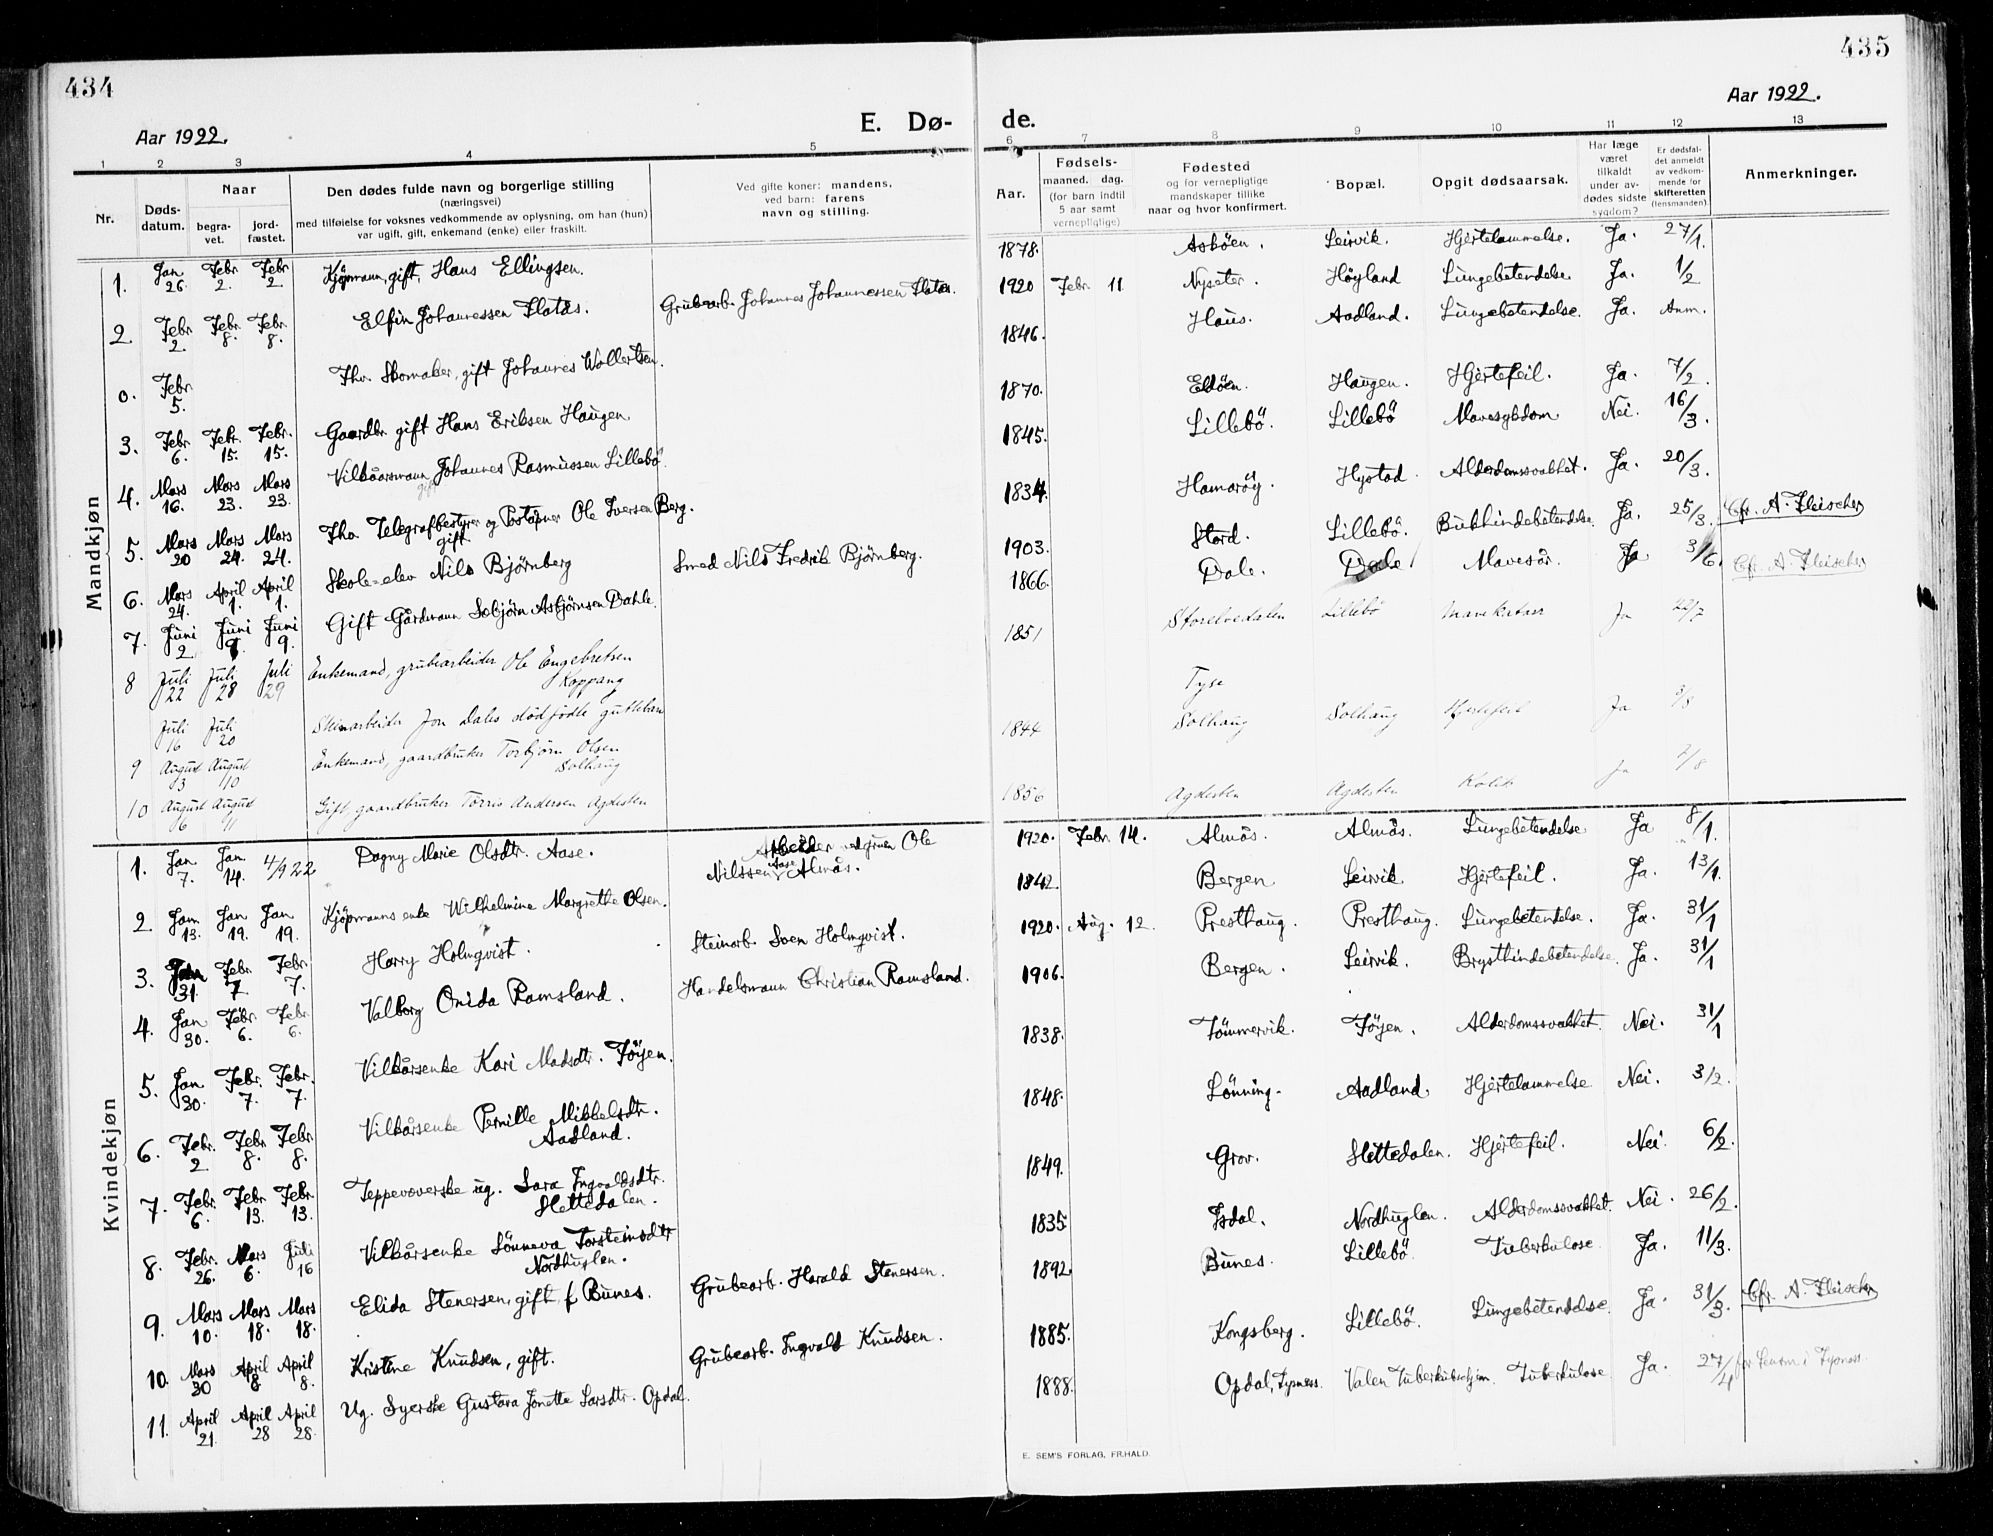 434
435
Aar 1922.
Aar 1922.
E. Dø- de.
1 2 3 4 5 6 7 8 9 10 11 12 13
Nr.
Døds-
datum.
Naar
begra-
vet.
jord-
fæstet.
Den dødes fulde navn og borgerlige stilling
(næringsvei)
med tilføielse for voksnes vedkommende av oplysning, om han (hun)
var ugift, gift, enkemand (enke) eller fraskilt.
Ved gifte koner: mandens,
ved barn: farens
navn og stilling.
Aar.
Fødsels-
maaned. dag.
(for barn indtil
5 aar samt
vernepligtige)
Fødested
og for vernepligtige
mandskaper tillike
naar og hvor konfirmert.
Bopæl.
Opgit dødsaarsak.
Har læge
været
tilkaldt
under av-
dødes sidste
sygdom?
Er dødsfal-
det anmeldt
av vedkom-
mende for
skifteretten
(lensmanden).
Anmerkninger.
Mandkjøn
1. Jan. 26. Febr. 2. Febr. 2. Kjøpmann, gift, Hans Ellingsen. 1878. Asköen. Leirvik. Hjertelammelse. Ja. 27/1.
2. Febr. 2. Febr. 8. Febr. 8. Elfin Johannessen Flatås. Grubearb. Johannes Johannessen Flatås. 1920 Febr. 11 Nyseter. Höyland Lungebetendelse Ja. 1/2
0. Febr. 5. Fhv. Skomaker, gift Johannes Wollertsen. 1846. Haus. Aadland. Lungebetendelse. Ja. Anm.
3. Febr. 6. Febr. 15. Febr. 15. Gaardbr. gift Hans Eriksen Haugen 1870. Eldöen. Haugen. Hjertefeil. Ja. 7/2.
4. Mars 16. Mars 23. Mars 23. Vilkåarsmann gift Johannes Rasmussen Lillebö. 1845. Lillebö. Lillebö Mavesykdom Nei. 16/3.
5. Mars 20 Mars 24. Mars 24. Fhv. Telegrafbestyrer og Poståpner gift Ole Iversen Berg. 1834. Hamaröy. Hystad Alderdomssvakhet. Ja. 20/3.
6. Mars 24. April 1. April 1. Skole-elev Nils Bjørnberg Smed Nils Fredrik Bjørnberg. 1903. Stord. Lillebö. Bukhindebetendelse. Ja. 25/3. Cfr. A. Fleischer
7. Juni 2 Juni 9. Juni 9. Gift Gårdmann Sebjörn Asbjörnsen Dahle. 1866. Dale. Dale Mavesår. Ja 3/6. Cfr. A. Fleischer
8 Juli 22 Juli 28 Juli 29 Enkemand, grubearbeider Ole Engebretsen
Koppang 1851 Storelvedalen Lillebö Mavekatarr Ja 22/7
Juli 16 Juli 20 Steinarbeider Jon Dales dødfødte guttebarn Tyse
9 August 3 August 10 Enkemand, gaardbruker Torbjörn Olsen
Solhaug 1844 Solhaug Solhaug Hjertefeil Ja 3/8
10 August 6 August 11 Gift gaardbruker Torris Andersen Agdesten 1856 Agdesten Agdesten Kolik Ja 7/8
Kvindekjøn
1. Jan. 7. Jan. 14. 4/9 22 Dagny Marie Olsdtr. Aase. Arbeider ved gruen Ole
Nilssen Aase Almås. 1920. Febr. 14. Almås. Almås. Lungebetendelse Ja 8/1.
2. Jan. 13. Jan. 19. Jan. 19. Kjöpmanns enke Wilhelmine Margrethe Olsen. 1842. Bergen Leirvik Hjertefeil. Ja. 13/1.
3. Jan 31. Febr. 7. Febr. 7. Harry Holmqvist. Steinarb. Sven Holmqvist. 1920. Aug. 12. Presthaug. Presthaug. Lungebetendelse. Ja. 31/1
4. Jan 30. Febr. 6. Febr. 6. Valborg Onida Ramsland. Handelsmann Christian Ramsland. 1906. Bergen. Leirvik. Brysthindebetendelse. Ja. 31/1
5. Jan 30. Febr. 7. Febr. 7. Vilkårsenke Kari Madsdtr. Töyen. 1838. Tömmervik. Töyen. Alderdomssvakhet. Nei. 31/1
6. Febr. 2 Febr. 8. Febr. 8. Vilkårsenke Pernille Mikkelsdtr.
Aadland. 1848. Lönning. Aadland. Hjertelammelse Nei. 3/2.
7. Febr. 6. Febr. 13. Febr. 13. Teppevoverske ug. Sara Ingvaldsdtr.
Slettedalen. 1849. Grov. Slettedalen. Hjertefeil. Nei. 6/2.
8. Febr. 26. Mars 6. Juli 16 Vilkårsenke Sönneva Torsteinsdtr
Nordhuglen. 1835 Isdal. Nordhuglen. Alderdomssvakhet. Nei. 26/2.
9. Mars 10. Mars 18. Mars 18. Elida Stenersen, gift, f. Bunes. Grubearb. Harald Stenersen. 1892 Bunes. Lillebö. Tuberkulose Ja. 11/3.
10. Mars 30 April 8. April 8. Kristine Knudsen, gift. Grubearb. Ingvald Knudsen. 1885. Kongsberg. Lillebö. Lungebetendelse. Ja. 31/3. Cfr. A. Fleischer
11. April 21. April 28 April 28. Ug. Syerske Gustava Jonette Larsdtr. Opdal. 1888. Opdal, Tysnes. Valen Tuberkulosehjem. Tuberkulose Ja. 27/4 for Lensm. i Tysnes.
E. SEM'S FORLAG, FR.HALD.